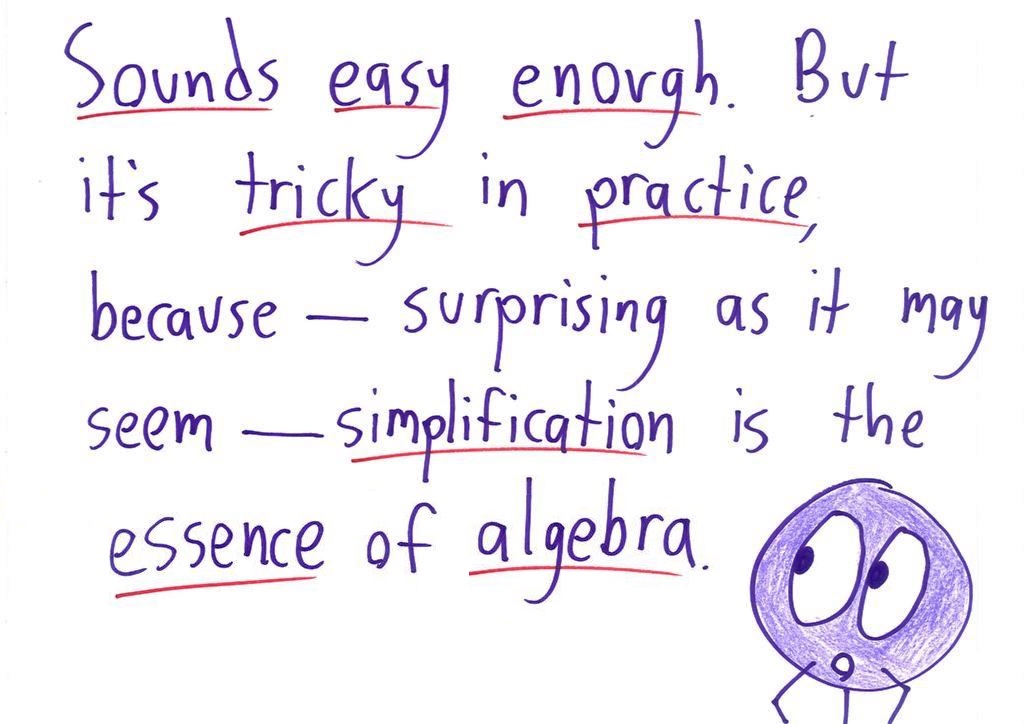 Sounds easy enough. But
it's tricky in practice,
because — surprising as it may
seem — simplification is the
essence of algebra.